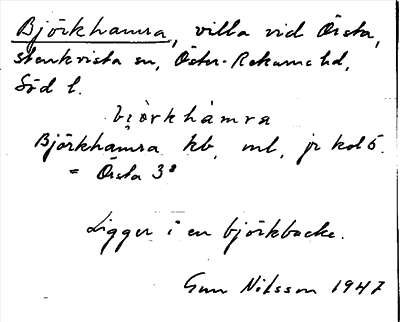 Björkhamra, villa vid Örsta,
Stenkvista sn, Öster-Rekarne hd,
Söd l.
bjö̀rkhàmra
Björkhamra kb, ml, jr kol 5.
= Örsta 3⁸
Ligger i en björkbacke.
Gun Nilsson 1947